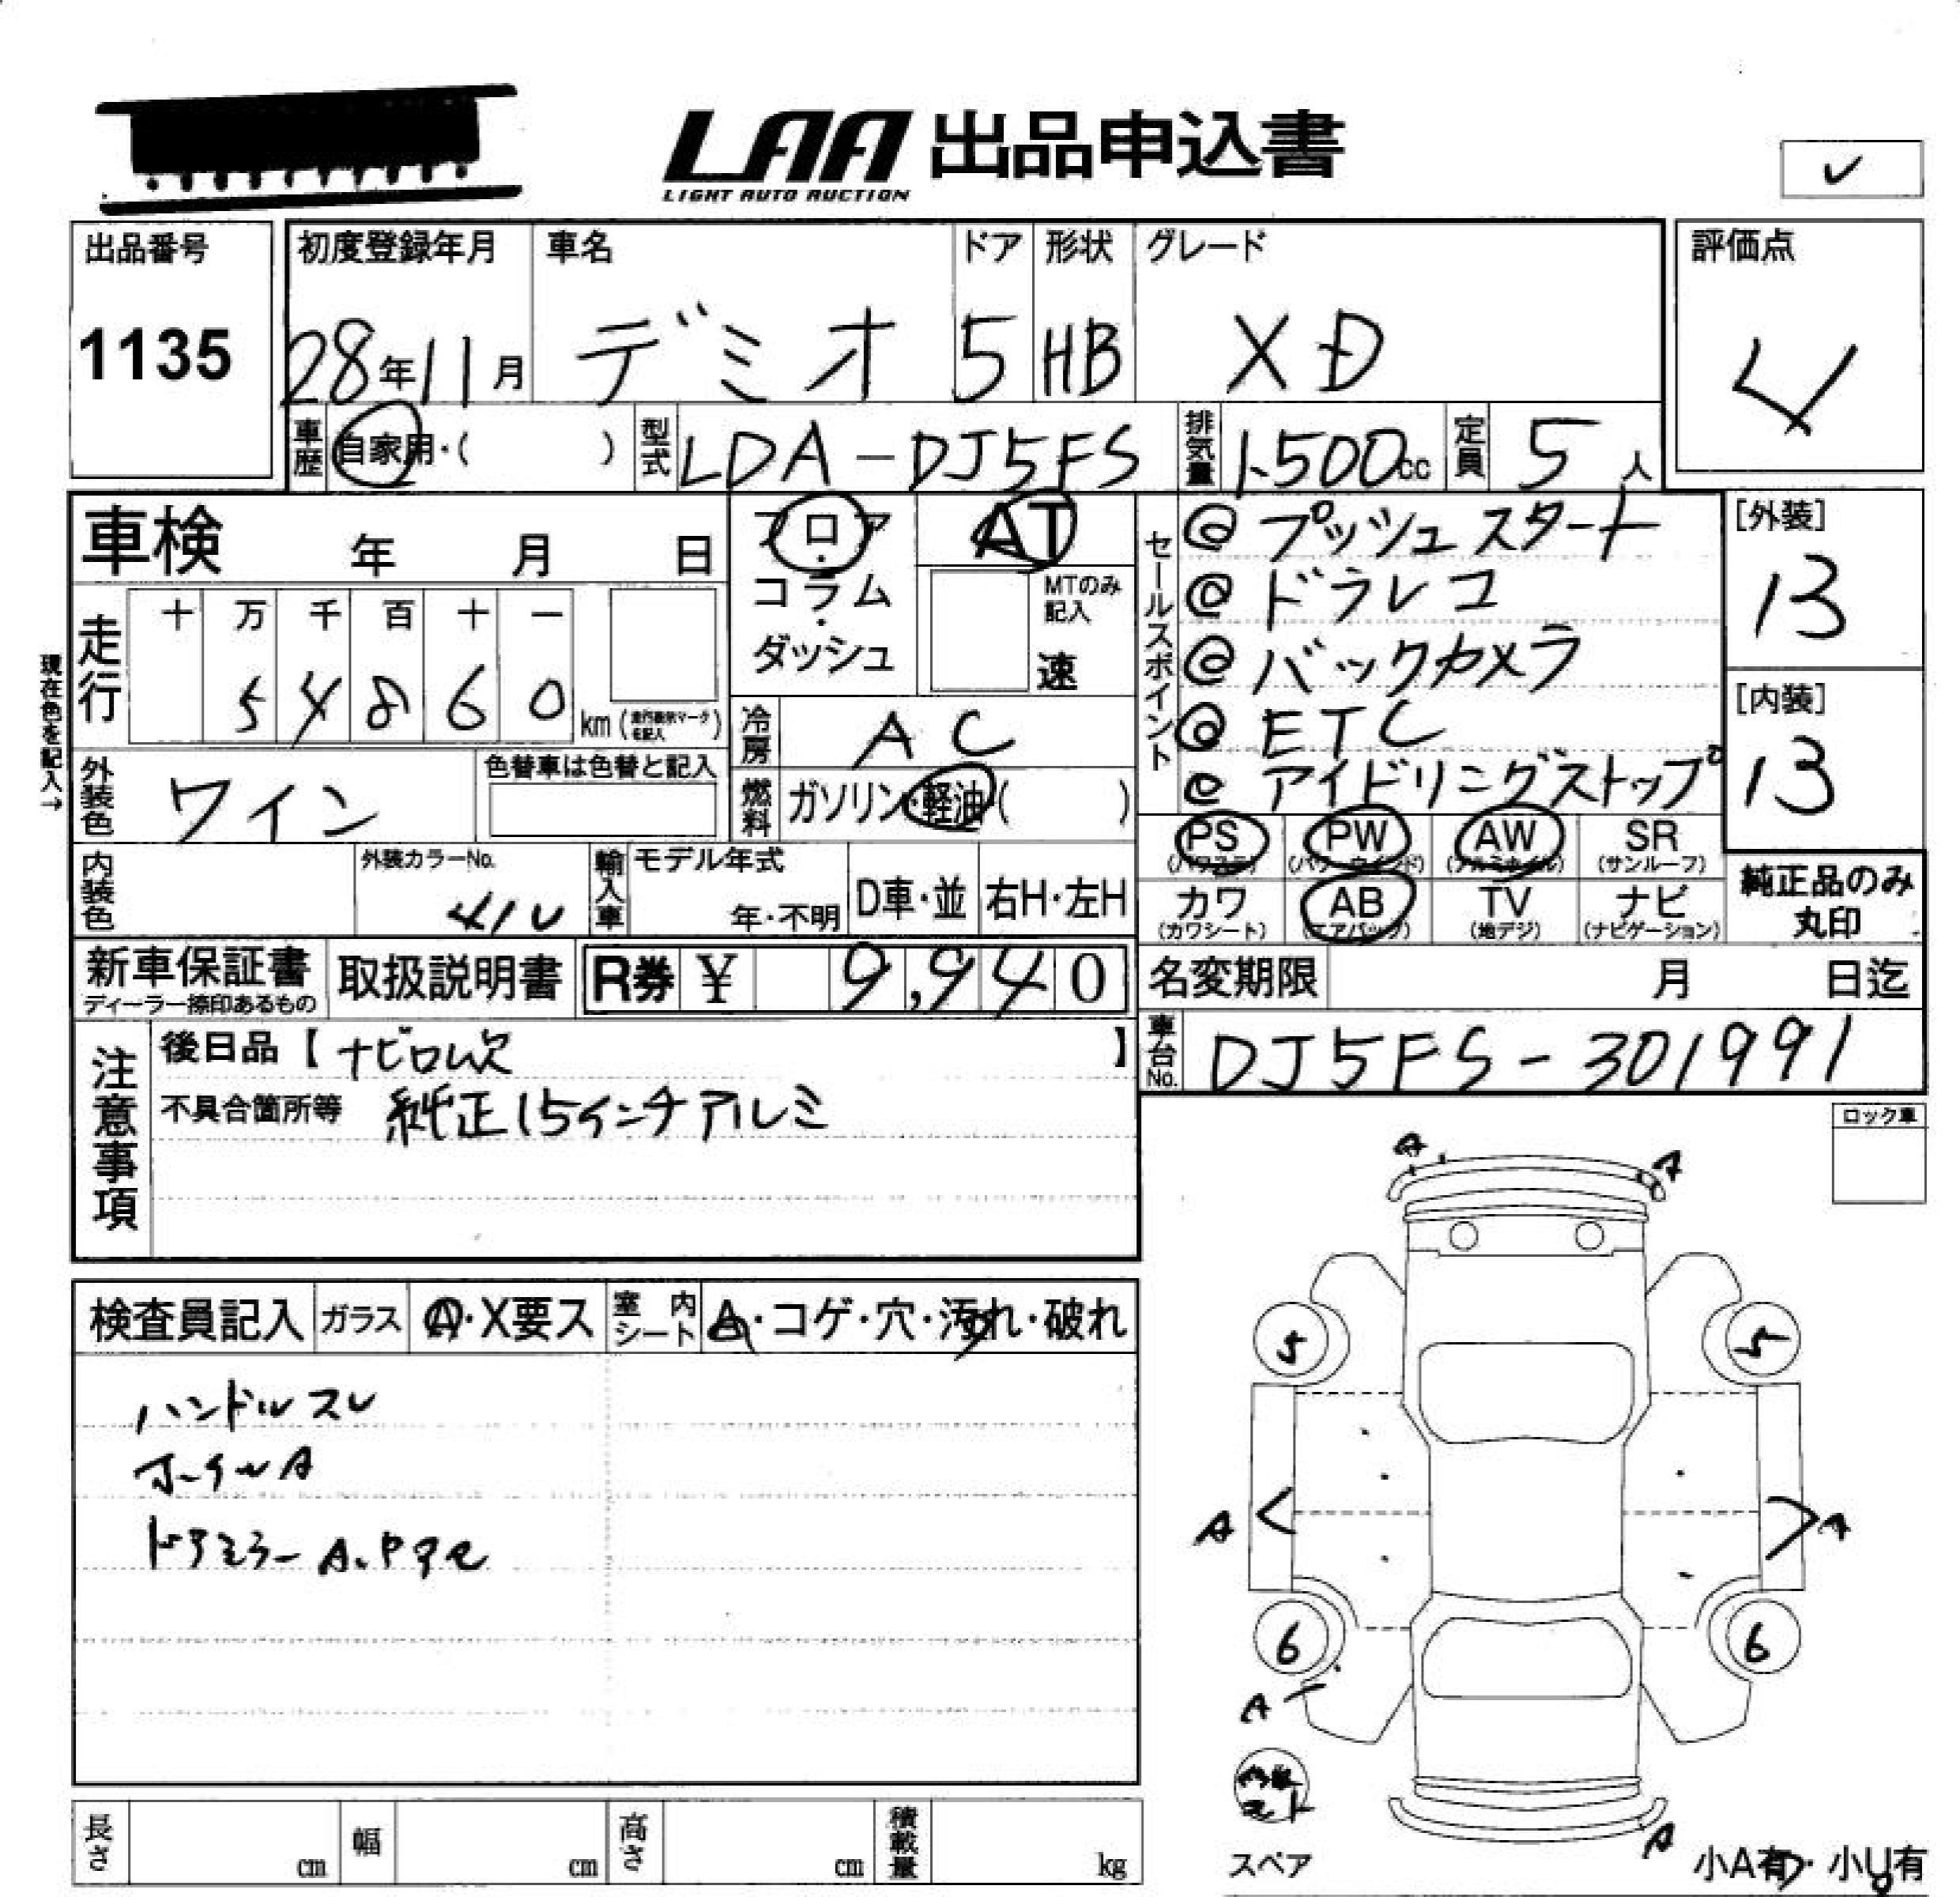 LAA 出品申込書
LIGHT AUTO AUCTION
出品番号
1135
初度登録年月 車名 ドア 形状 グレード 評価点
28年11月 デミオ 5 HB XD 4
車歴 自家用・( ) 型式 LDA-DJ5FS 排気量 1,500cc 定員 5人
車検 年 月 日
フロア・コラム・ダッシュ
AT
MTのみ記入
速
セールスポイント
@プッシュスタート
@ドラレコ
@バックカメラ
@ETC
@アイドリングストップ
[外装]
13
[内装]
13
現在色を記入→
走行 十 万 千 百 十 一
5 4 8 6 0 km (走行表示マークを記入)
冷房 AC
外装色 ワイン 色替車は色替と記入
燃料 ガソリン・軽油・( )
PS (パワステ) PW (パワーウインド) AW (アルミホイル) SR (サンルーフ)
カワ (カワシート) AB (エアバック) TV (地デジ) ナビ (ナビゲーション)
純正品のみ丸印
内装色 外装カラーNo. 41V 輸入車 モデル年式 年・不明 D車・並 右H・左H
新車保証書 ディーラー捺印あるもの 取扱説明書 R券 ¥ 9,940
名変期限 月 日迄
車台No. DJ5FS-301991
注意事項
後日品【ナビロム欠】
不具合箇所等 純正15インチアルミ
ロック車
検査員記入 ガラス A・X要ス 室内シート A・コゲ・穴・汚れ・破れ
ハンドルスレ
ホイールA
ドアミラーA、
A A
5 5
A A
6 6
A
A
スペア
小A有・小U有
長さ cm 幅 cm 高さ cm 積載量 kg